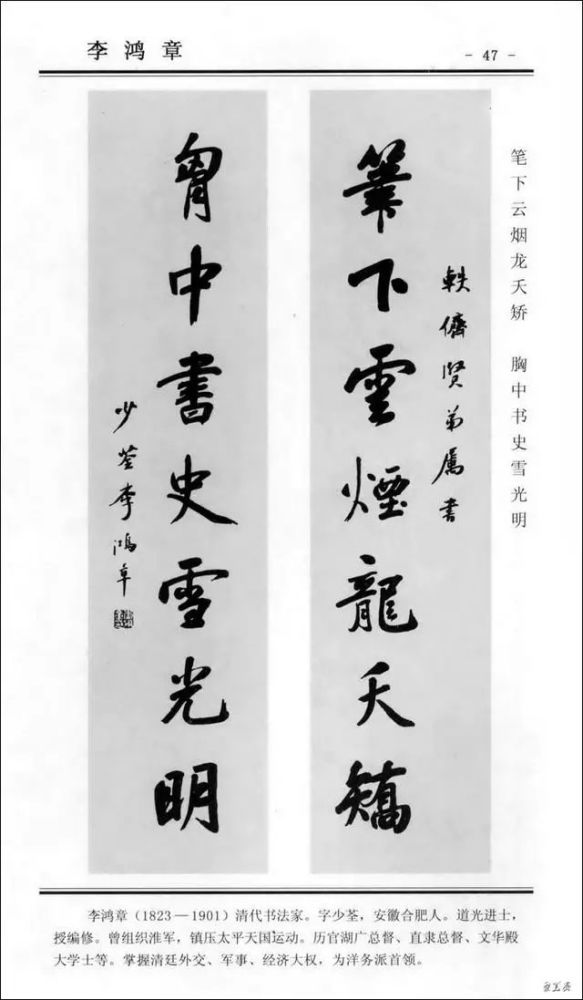 李鸿章
- 47 -
笔下云烟龙夭矫 胸中书史雪光明
軼儕贤弟属書
筆下雲煙龍夭矯
胷中書史雪光明
少荃李鴻章
李鸿章（1823—1901）清代书法家。字少荃，安徽合肥人。道光进士，
授编修。曾组织淮军，镇压太平天国运动。历官湖广总督、直隶总督、文华殿
大学士等。掌握清廷外交、军事、经济大权，为洋务派首领。